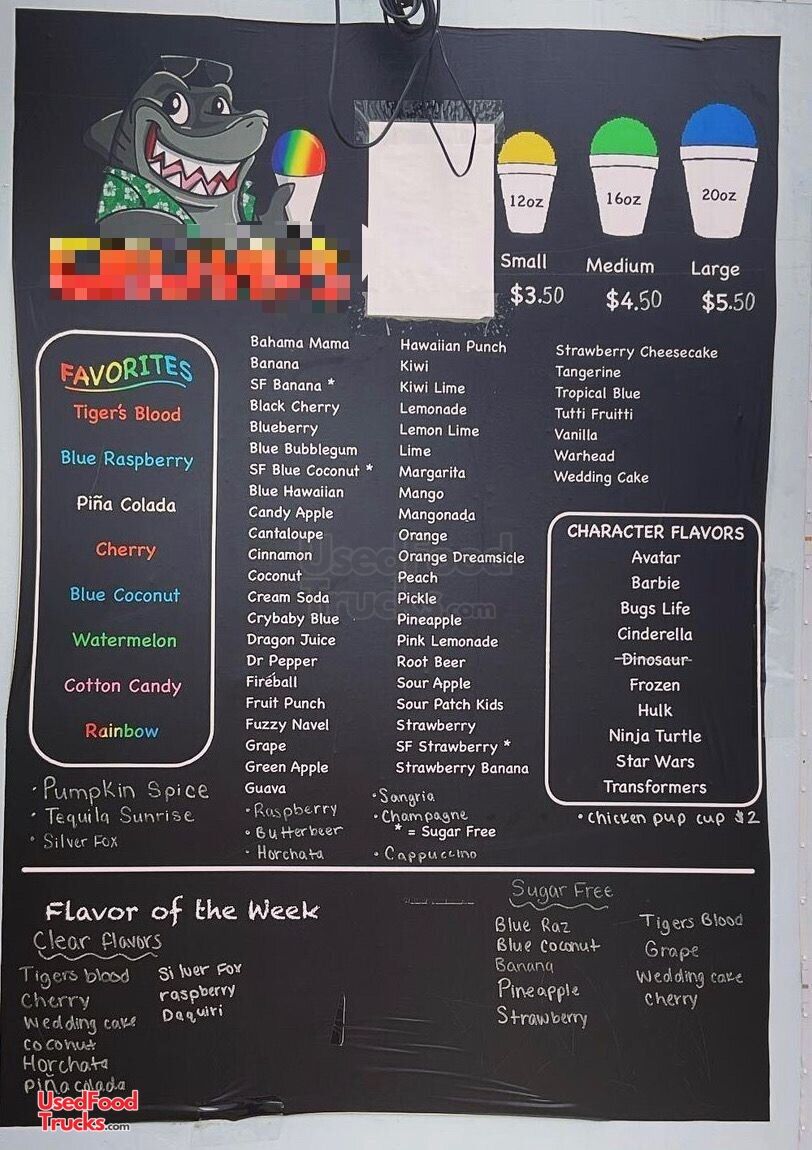 12oz
16oz
20oz
Small
Medium
Large
$3.50
$4.50
$5.50
FAVORITES
Tiger's Blood
Blue Raspberry
Piña Colada
Cherry
Blue Coconut
Watermelon
Cotton Candy
Rainbow
• Pumpkin Spice
• Tequila Sunrise
• Silver Fox
Bahama Mama
Banana
SF Banana *
Black Cherry
Blueberry
Blue Bubblegum
SF Blue Coconut *
Blue Hawaiian
Candy Apple
Cantaloupe
Cinnamon
Coconut
Cream Soda
Crybaby Blue
Dragon Juice
Dr Pepper
Fireball
Fruit Punch
Fuzzy Navel
Grape
Green Apple
Guava
• Raspberry
• Butterbeer
• Horchata
Hawaiian Punch
Kiwi
Kiwi Lime
Lemonade
Lemon Lime
Lime
Margarita
Mango
Mangonada
Orange
Orange Dreamsicle
Peach
Pickle
Pineapple
Pink Lemonade
Root Beer
Sour Apple
Sour Patch Kids
Strawberry
SF Strawberry *
Strawberry Banana
• Sangria
• Champagne
* = Sugar Free
• Cappuccino
Strawberry Cheesecake
Tangerine
Tropical Blue
Tutti Fruitti
Vanilla
Warhead
Wedding Cake
CHARACTER FLAVORS
Avatar
Barbie
Bugs Life
Cinderella
Dinosaur
Frozen
Hulk
Ninja Turtle
Star Wars
Transformers
• Chicken pup cup $2
Flavor of the Week
Clear flavors
Tigers blood
Cherry
Wedding cake
Coconut
Horchata
Piña colada
Silver Fox
raspberry
Daquiri
Sugar Free
Blue Raz
Blue Coconut
Banana
Pineapple
Strawberry
Tigers Blood
Grape
Wedding cake
Cherry
UsedFood
Trucks.com
UsedFood
Trucks.com